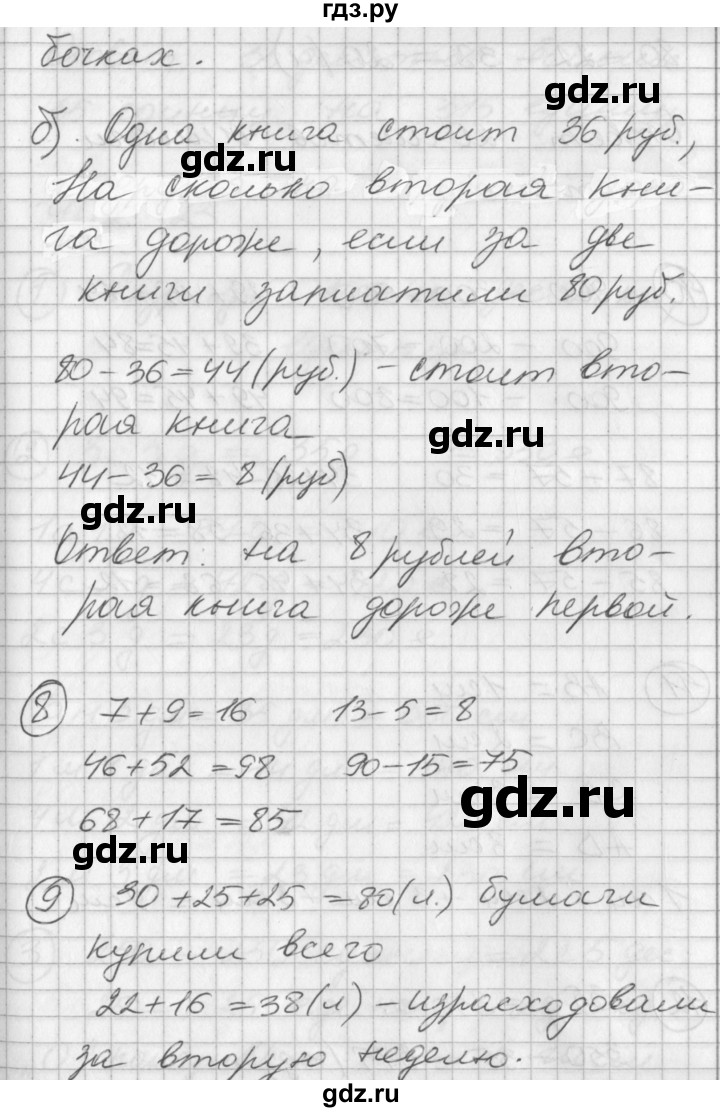 гдз.ру
бочках.
gdz.ru
б). Одна книга стоит 36 руб.,
gdz.ru
На сколько вторая кни-
га дороже, если за две
книги заплатили 80 руб.
80-36=44(руб.) - стоит вто-
рая книга
gdz.ru
44-36= 8(руб)
gdz.ru
Ответ: на 8 рублей вто-
рая книга дороже первой.
8 7+9=16 13-5=8
46+52=98 90-15=75
gdz.ru
68+17=85
gdz.ru
9 30+25+25=80(л.) бумаги
купили всего
22+16=38(л) - израсходовали
gdz.ru
за вторую неделю.
gdz.ru